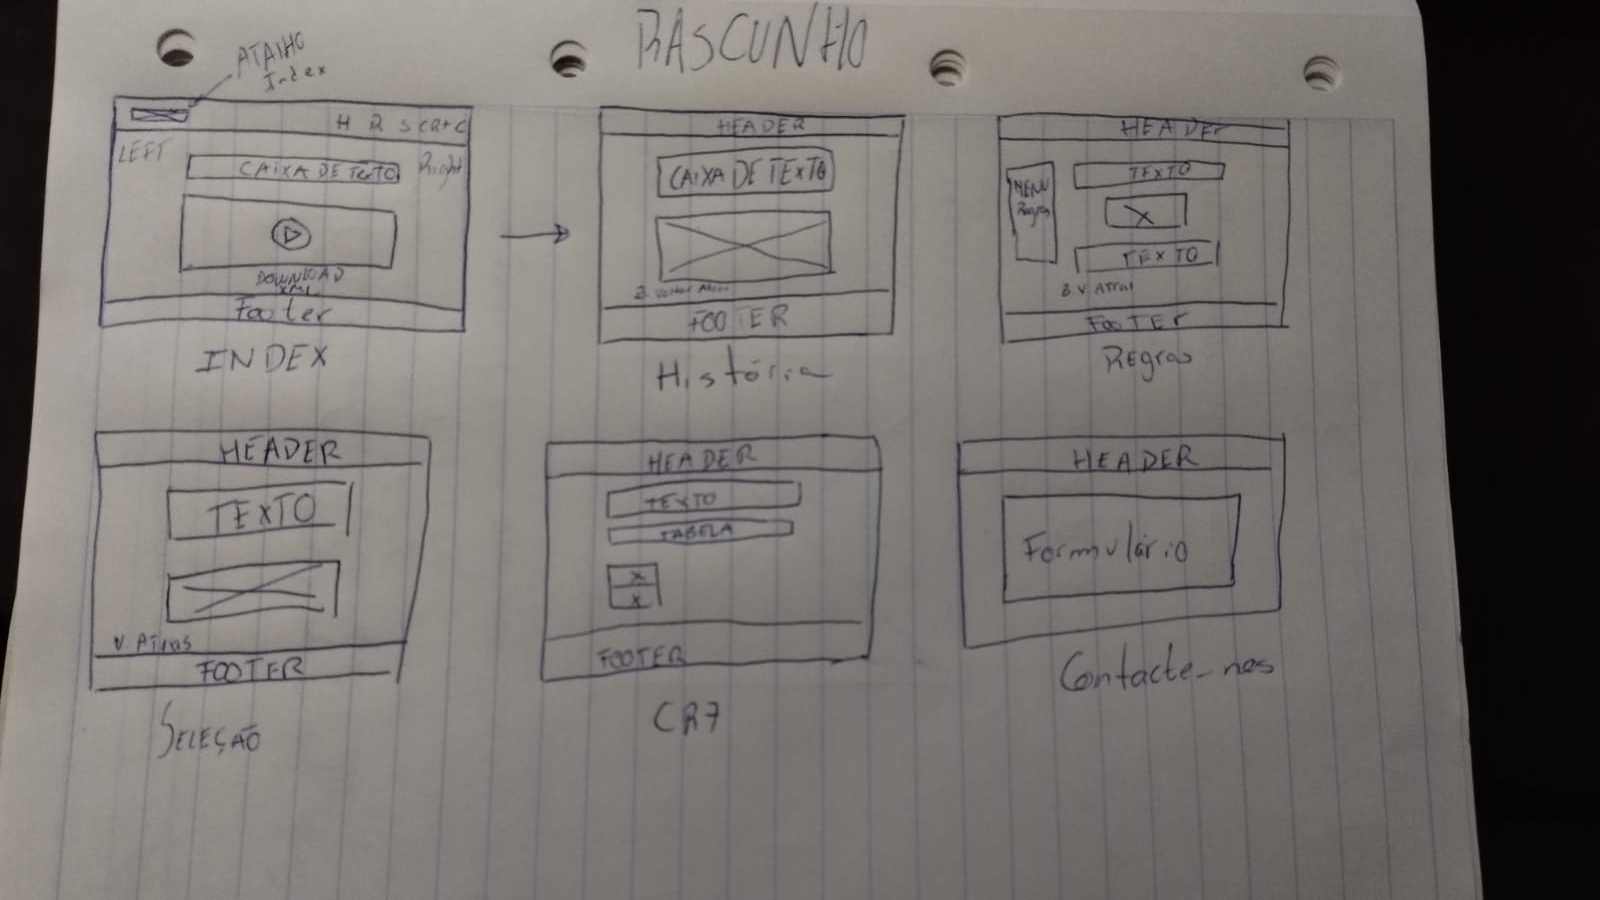 RASCUNHO
ATALHO
Index
H R S CR7 C
LEFT
CAIXA DE TEXTO
Right
DOWNLOAD
XML
Footer
INDEX
HEADER
CAIXA DE TEXTO
B. Voltar Atras
FOOTER
História
HEADER
MENU
Regras
TEXTO
TEXTO
B. V. Atras
FOOTER
Regras
HEADER
TEXTO
V. Atras
FOOTER
SELEÇÃO
HEADER
TEXTO
TABELA
FOOTER
CR7
HEADER
Formulário
Contacte-nos